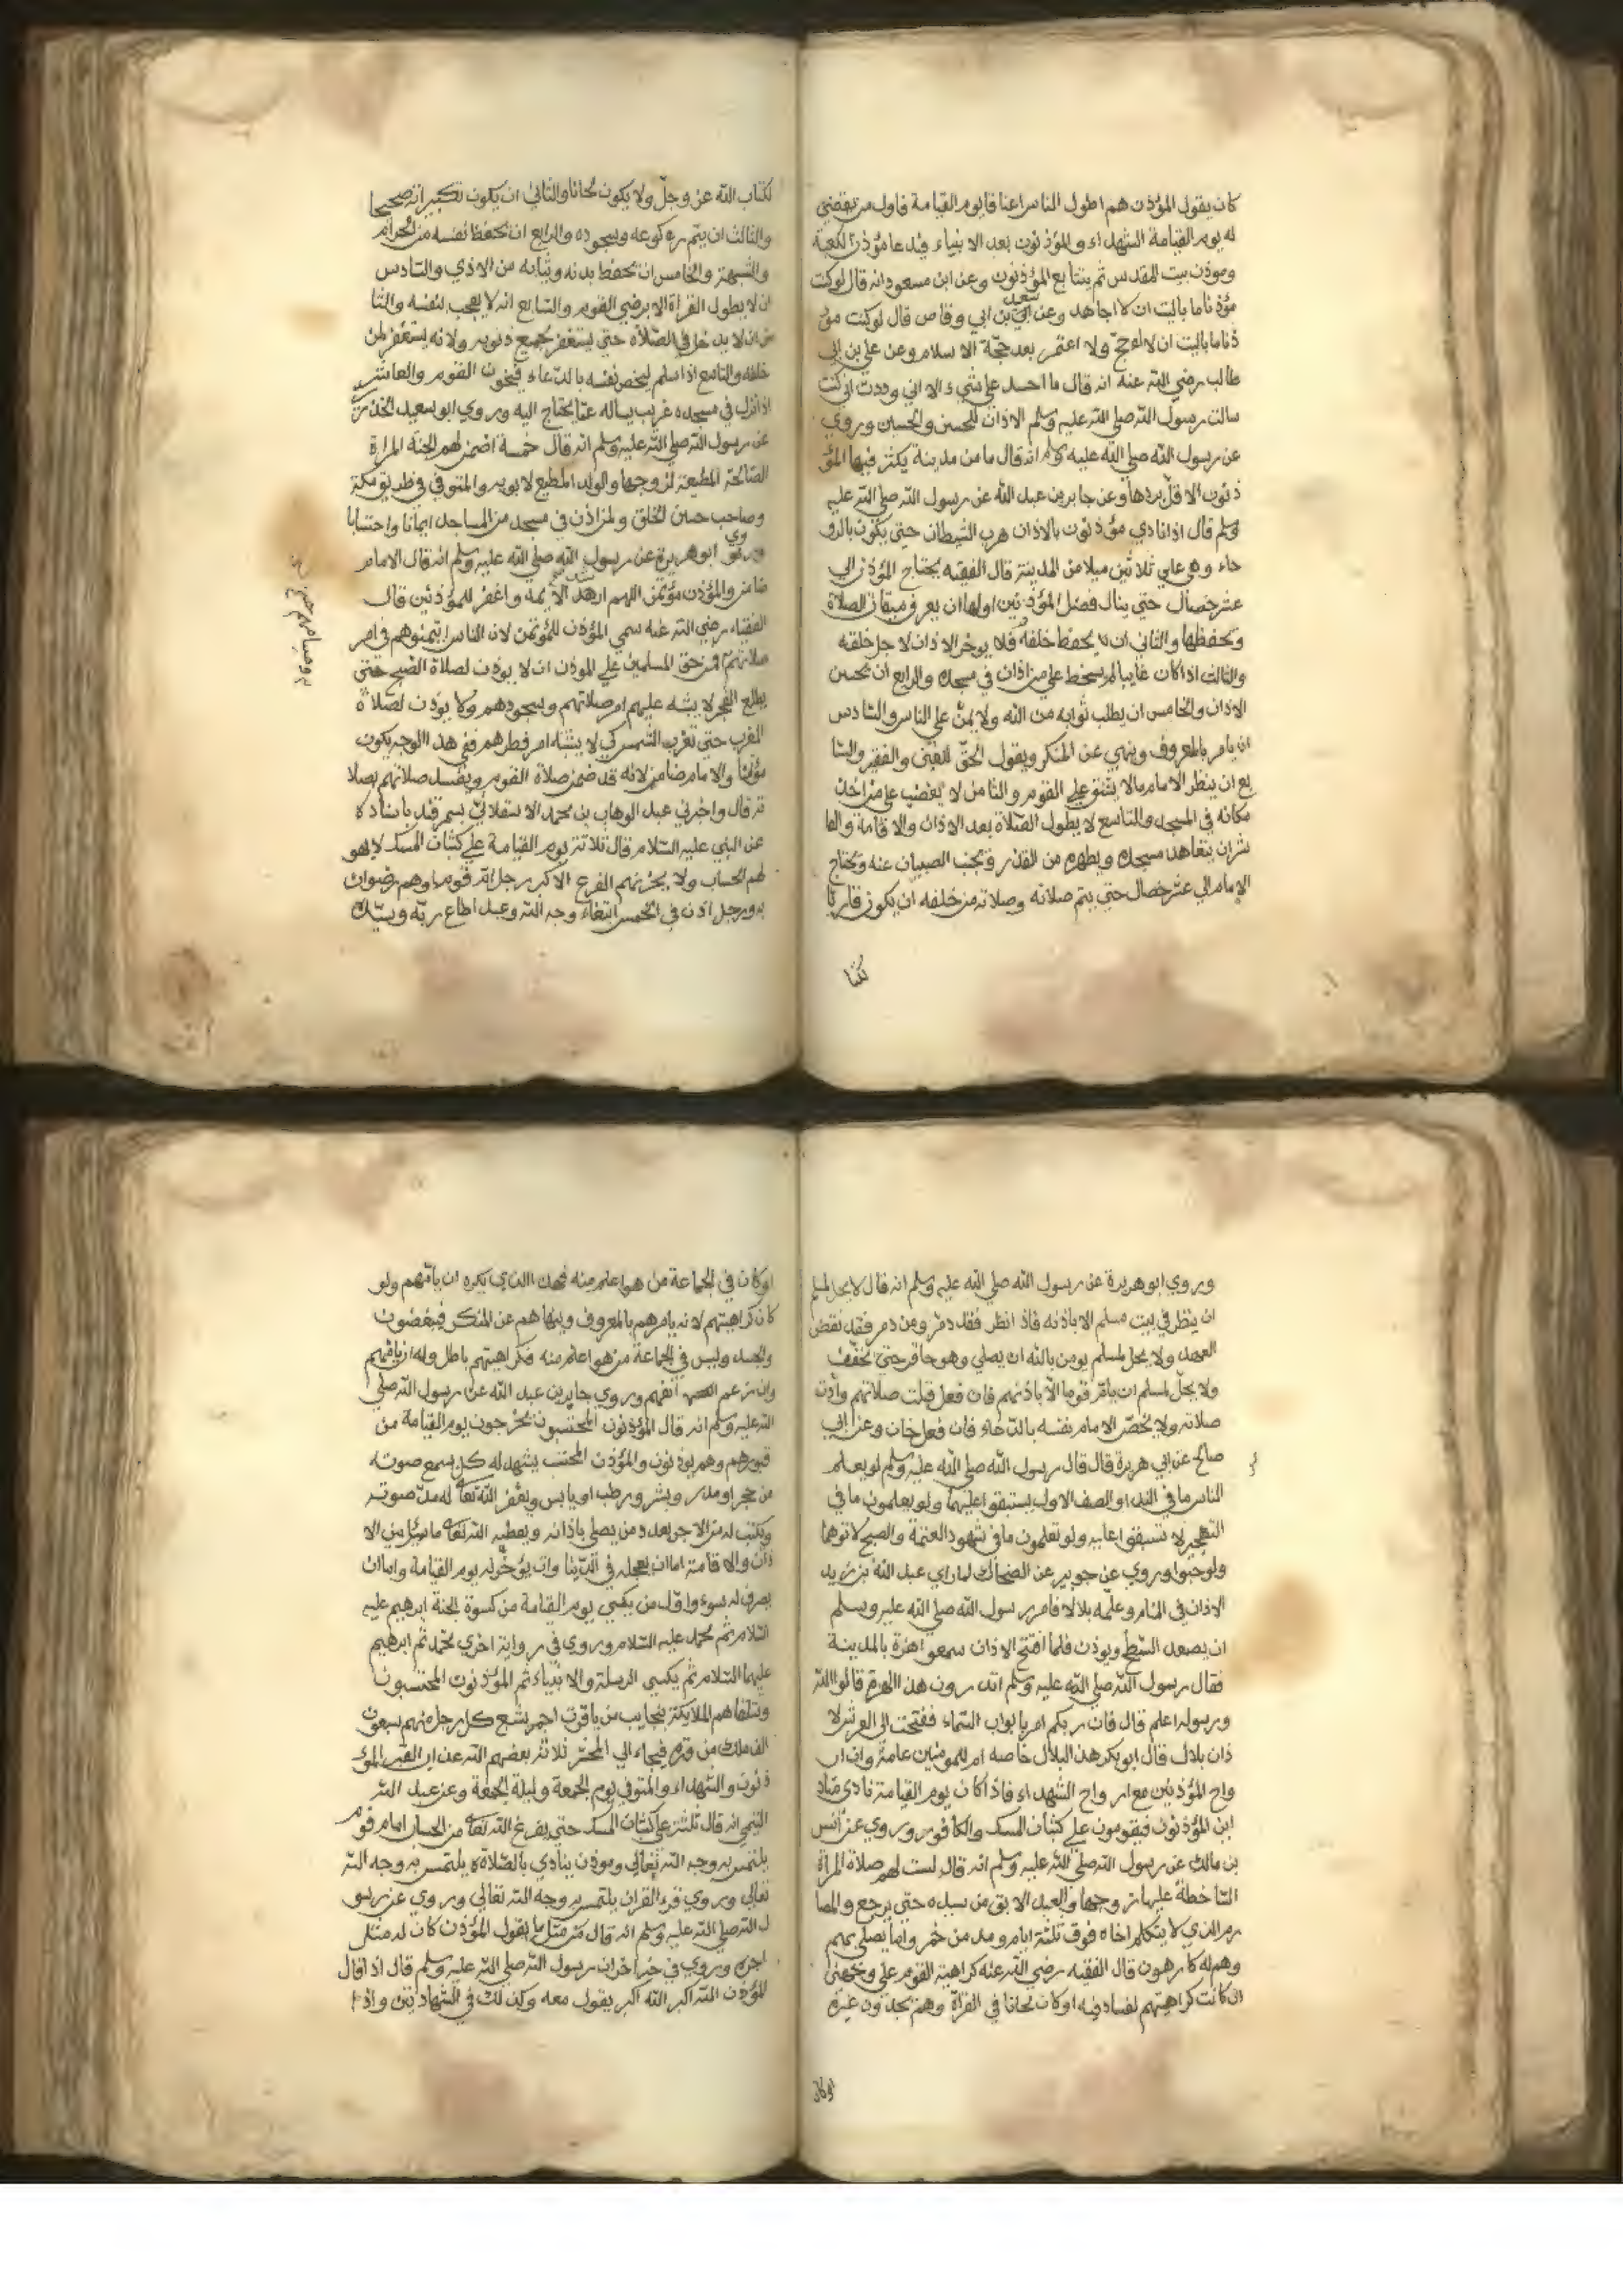 كان يقول المؤذن هم اطول الناس اعناقا يوم القيامة فاول من يقضي
له يوم القيامة الشهداء والمؤذنون بعد الانبياء فيدعا مؤذن الكعبة
ومؤذن بيت المقدس ثم يتتابع المؤذنون وعن ابن مسعود انه قال لو كنت
مؤذنا ما باليت ان لا اجاهد وعن سعد بن ابي وقاص قال لو كنت مؤ
ذنا ما باليت ان لا احج ولا اعتمر بعد حجة الاسلام وعن علي بن ابي
طالب رضي الله عنه انه قال ما احسد على شيء الا اني وددت اني كنت
سالت رسول الله صلي الله عليه وسلم الاذان للحسن والحسين وروي
عن رسول الله صلي الله عليه وسلم انه قال ما من مدينة يكثر فيها المؤ
ذنون الا قل بردها وعن جابر بن عبد الله عن رسول الله صلي الله عليه
وسلم قال اذا نادي مؤذنون بالاذان هرب الشيطان حتي يكون بالرو
حاء وهي علي ثلاثين ميلا من المدينة قال الفقيه يحتاج المؤذن الي
عشر خصال حتي ينال فضل المؤذنين اولها ان يعرف ميقات الصلاة
ويحفظها والثاني ان يحفظ حلقه فلا يوخر الاذان لاجل حلقه
والثالث اذا كان غايبا لم يسخط علي من اذان في مسجده والرابع ان يحسن
الاذان والخامس ان يطلب ثوابه من الله ولا يمن على الناس والسادس
ان يامر بالمعروف وينهي عن المنكر ويقول الحق للغني والفقير والسا
بع ان ينظر الامام ما لا يشق علي القوم والثامن لا يغضب علي من اخذ
مكانه في المسجد والتاسع لا يطول الصلاة بعد الاذان والاقامة والعا
شر ان يتعاهد مسجده ويطهره من القذر ويجنب الصبيان عنه ويحتاج
الامام الي عشر خصال حتي يتم صلاته وصلاة من خلفه ان يكون قاريا
لكتا
لكتاب الله عز وجل ولا يكون لحانا والثاني ان يكون تكبيراته صحيحا
والثالث ان يتم ركوعه وسجوده والرابع ان يحفظ نفسه من الحرام
والشبهة والخامس ان يحفظ بدنه وثيابه من الاذي والسادس
ان لا يطول القراة الا برضي القوم والسابع انه لا يعجب لنفسه والثا
من ان لا يدخل في الصلاة حتي يستغفر جميع ذنوبه ولانه يستغفر لمن
خلفه والتاسع اذا سلم ليخص نفسه بالدعاء فيخون القوم والعاشر
اذا نزل في مسجده غريب يساله عما يحتاج اليه وروي ابو سعيد الخذري
عن رسول الله صلي الله عليه وسلم انه قال خمسة اضمن لهم الجنة المراة
الصالحة المطيعة لزوجها والولد المطيع لابويه والمتوفي في طريق مكة
وصاحب حسن الخلق ولمن اذن في مسجد من المساجد ايمانا واحتسابا
وروي ابو هريرة عن رسول الله صلي الله عليه وسلم انه قال الامام
ضامن والمؤذن مؤتمن اللهم ارشد الايمه واغفر للمؤذنين قال
الفقيه رضي الله عنه سمي المؤذن للمؤتمن لان الناس ايتمنوهم في امر
صلاتهم فمن حق المسلمين علي المؤذن ان لا يوذن لصلاة الصبح حتى
يطلع الفجر لا يشبه عليهم امر صلاتهم وسحورهم ولا يؤذن لصلاة
المغرب حتي تغرب الشمس كي لا يشتبه امر فطرهم فمن هذا الوجه يكون
مؤتمنا والامام ضامن لانه قد ضمن صلاة القوم ويفسد صلاتهم بصلا
ته قال واخبرني عبد الوهاب بن محمد بسمرقند باسناده
عن النبي عليه السلام قال ثلاثة يوم القيامة علي كثبان المسك لا يهو
لهم الحساب ولا يحزنهم الفزع الاكبر رجل ام قوما وهم رضوان
به ورجل اذن في الخمس ابتغاء وجه الله وعبد اطاع ربه وسيده
وروي ابو هريرة عن رسول الله صلي الله عليه وسلم انه قال لا يحل لمسلم
ان ينظر في بيت مسلم الا باذنه فاذا نظر فقد دمر ومن دمر فقد نقض
العهد ولا يحل لمسلم يومن بالله ان يصلي وهو حاقن حتي يخفف
ولا يحل لمسلم ان يام قوما الا باذنهم فان فعل قبلت صلاتهم وردت
صلاته ولا يخص الامام نفسه بالدعاء فان فعل خان وعن ابي
صالح عن ابي هريرة قال قال رسول الله صلي الله عليه وسلم لو يعلم
الناس ما في الندا والصف الاول يستبقوا عليهما ولو يعلمون ما في
التهجير لا ستبقوا عليه ولو تعلمون ما في شهود العتمة والصبح لاتوهما
ولو حبوا وروي عن جويبر عن الضحاك لما راي عبد الله بن زيد
الاذان في المنام وعلمه بلالا فامر رسول الله صلي الله عليه وسلم
ان يصعد السطح ويوذن فلما افتتح الاذان سمعوا هزة بالمدينة
فقال رسول الله صلي الله عليه وسلم اتدرون هذا الهزة قالوا الله
ورسوله اعلم قال فان ربكم امر بابواب السماء ففتحت الي العرش لا
ذان بلال فقال ابو بكر هذا البلال خاصة ام للمومنين عامة وان ار
واح المؤذنين مع ارواح الشهداء فاذا كان يوم القيامة نادي مناد
اين المؤذنون فيقومون علي كثبان المسك والكافور وروي عن انس
بن مالك عن رسول الله صلي الله عليه وسلم انه قال ليست لهم صلاة المراة
الساخطة عليها زوجها والعبد الابق من سيده حتي يرجع والمصا
رم الذي لا يتكلم اخاه فوق ثلثة ايام ومدمن خمر وامام يصلي بهم
وهم له كارهون قال الفقيه رضي الله عنه كراهية القوم علي وجهين
ان كانت كراهيتهم لفساد فيه او كان لحانا في القراة وهم يجدون غيره
اوكان
او كان في الجماعة من هو اعلم منه فهذا الذي يكره ان يامهم ولو
كان كراهيتهم لانه يامرهم بالمعروف وينهاهم عن المنكر فيبغضون
والحسد وليس في الجماعة من هو اعلم منه فكراهيتهم باطل وله ان يامهم
وان رغم انفهم وروي جابر بن عبد الله عن رسول الله صلي
الله عليه وسلم انه قال المؤذنون المحتسبون يخرجون يوم القيامة من
قبورهم وهم يوذنون والمؤذن المحتسب يشهد له كل يسمع صوته
من حجر او مدر وبشر ورطب او يابس ويغفر الله تعا له مد صوته
ويكتب له من الاجر بعدد من يصلي باذانه ويعطيه الله تعا ما سئل من الا
ذان والاقامة اما ان يعجله في الدنيا وان يؤخر له يوم القيامة واما ان
يصرف له سوء واول من يكسي يوم القيامة من كسوة الجنة ابرهيم عليه
السلام ثم محمد عليه السلام وروي في رواية اخري محمد ثم ابرهيم
عليهما السلام ثم يكسي الرسلة والانبياء ثم المؤذنون المحتسبون
وتتلقاهم الملايكة بنجايب من ياقوت احمر يشيع كل رجل منهم سبعون
الف ملك من قبره فيجاء الي المحشر ثلاثة بعضهم الله عن القبر المؤ
ذنون والشهداء والمتوفي يوم الجمعة وليلة الجمعة وعن عبد الله
التيمي انه قال ثلثة علي كثبان المسك حتي يفرغ الله تعا من الحساب امام قوم
يلتمس به وجه الله تعالي وموذن ينادي بالصلاة يلتمس به وجه الله
تعالي وروي قرء القران يلتمس به وجه الله تعالي وروي عن رسو
ل الله صلي الله عليه وسلم انه قال من مثل ما يقول المؤذن كان له مثل
اجره وروي في خبر اخر ان رسول الله صلي الله عليه وسلم قال اذا قال
المؤذن الله اكبر الله اكبر يقول معه وكذلك في الشهادتين واذا